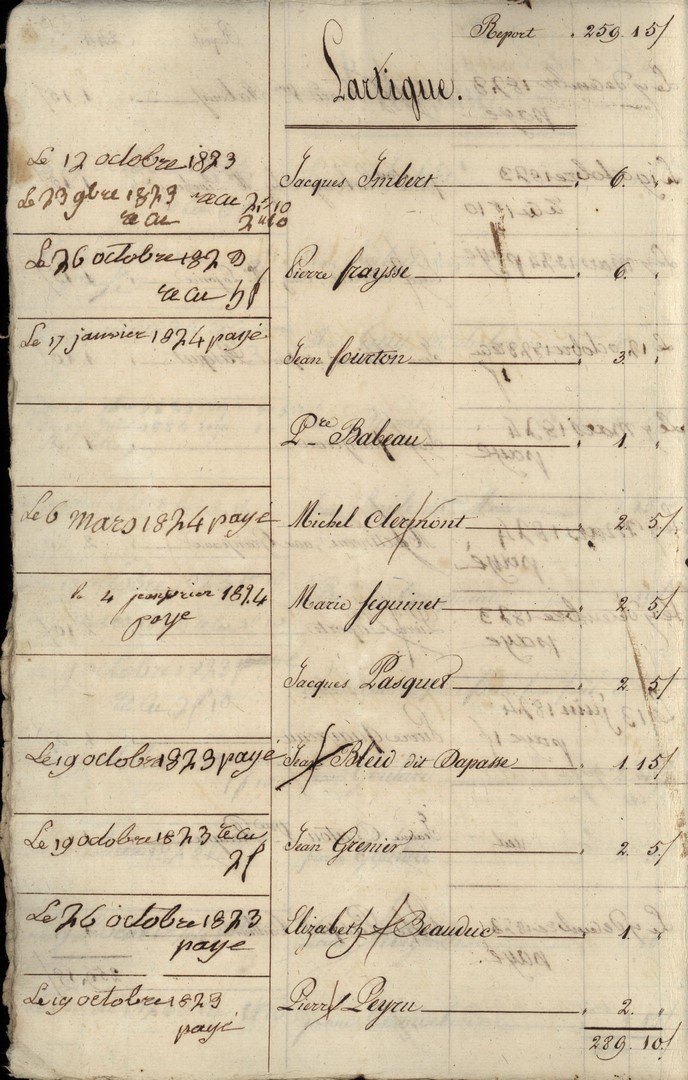 Report 259. 15/
Lartigue.
Le 12 octobre 1823
Le 23 9bre 1823 recu 2# 10
recu 2# 10
Jacques Imbert 6. "
Le 26 octobre 182
recu 5f
Pierre fraysse 6. "
Le 17 janvier 1824 payé
Jean fourton 3. "
Pre Babeau 1. "
Le 6 Mars 1824 payé
Michel Clermont 2. 5/
le 4 1824
payé
Marie Seguinet 2. 5/
Jacques Pasquet 2. 5/
Le 19 octobre 1823 payé
Jean Bleid dit Dapasse 1. 15/
Le 19 octobre 1823 recu
2f
Jean Grenier 2. 5/
Le 26 octobre 1823
payé
Elizabeth Beauduc 1. "
Le 19 octobre 1823
payé
Pierre Peyru 2. "
289. 10/